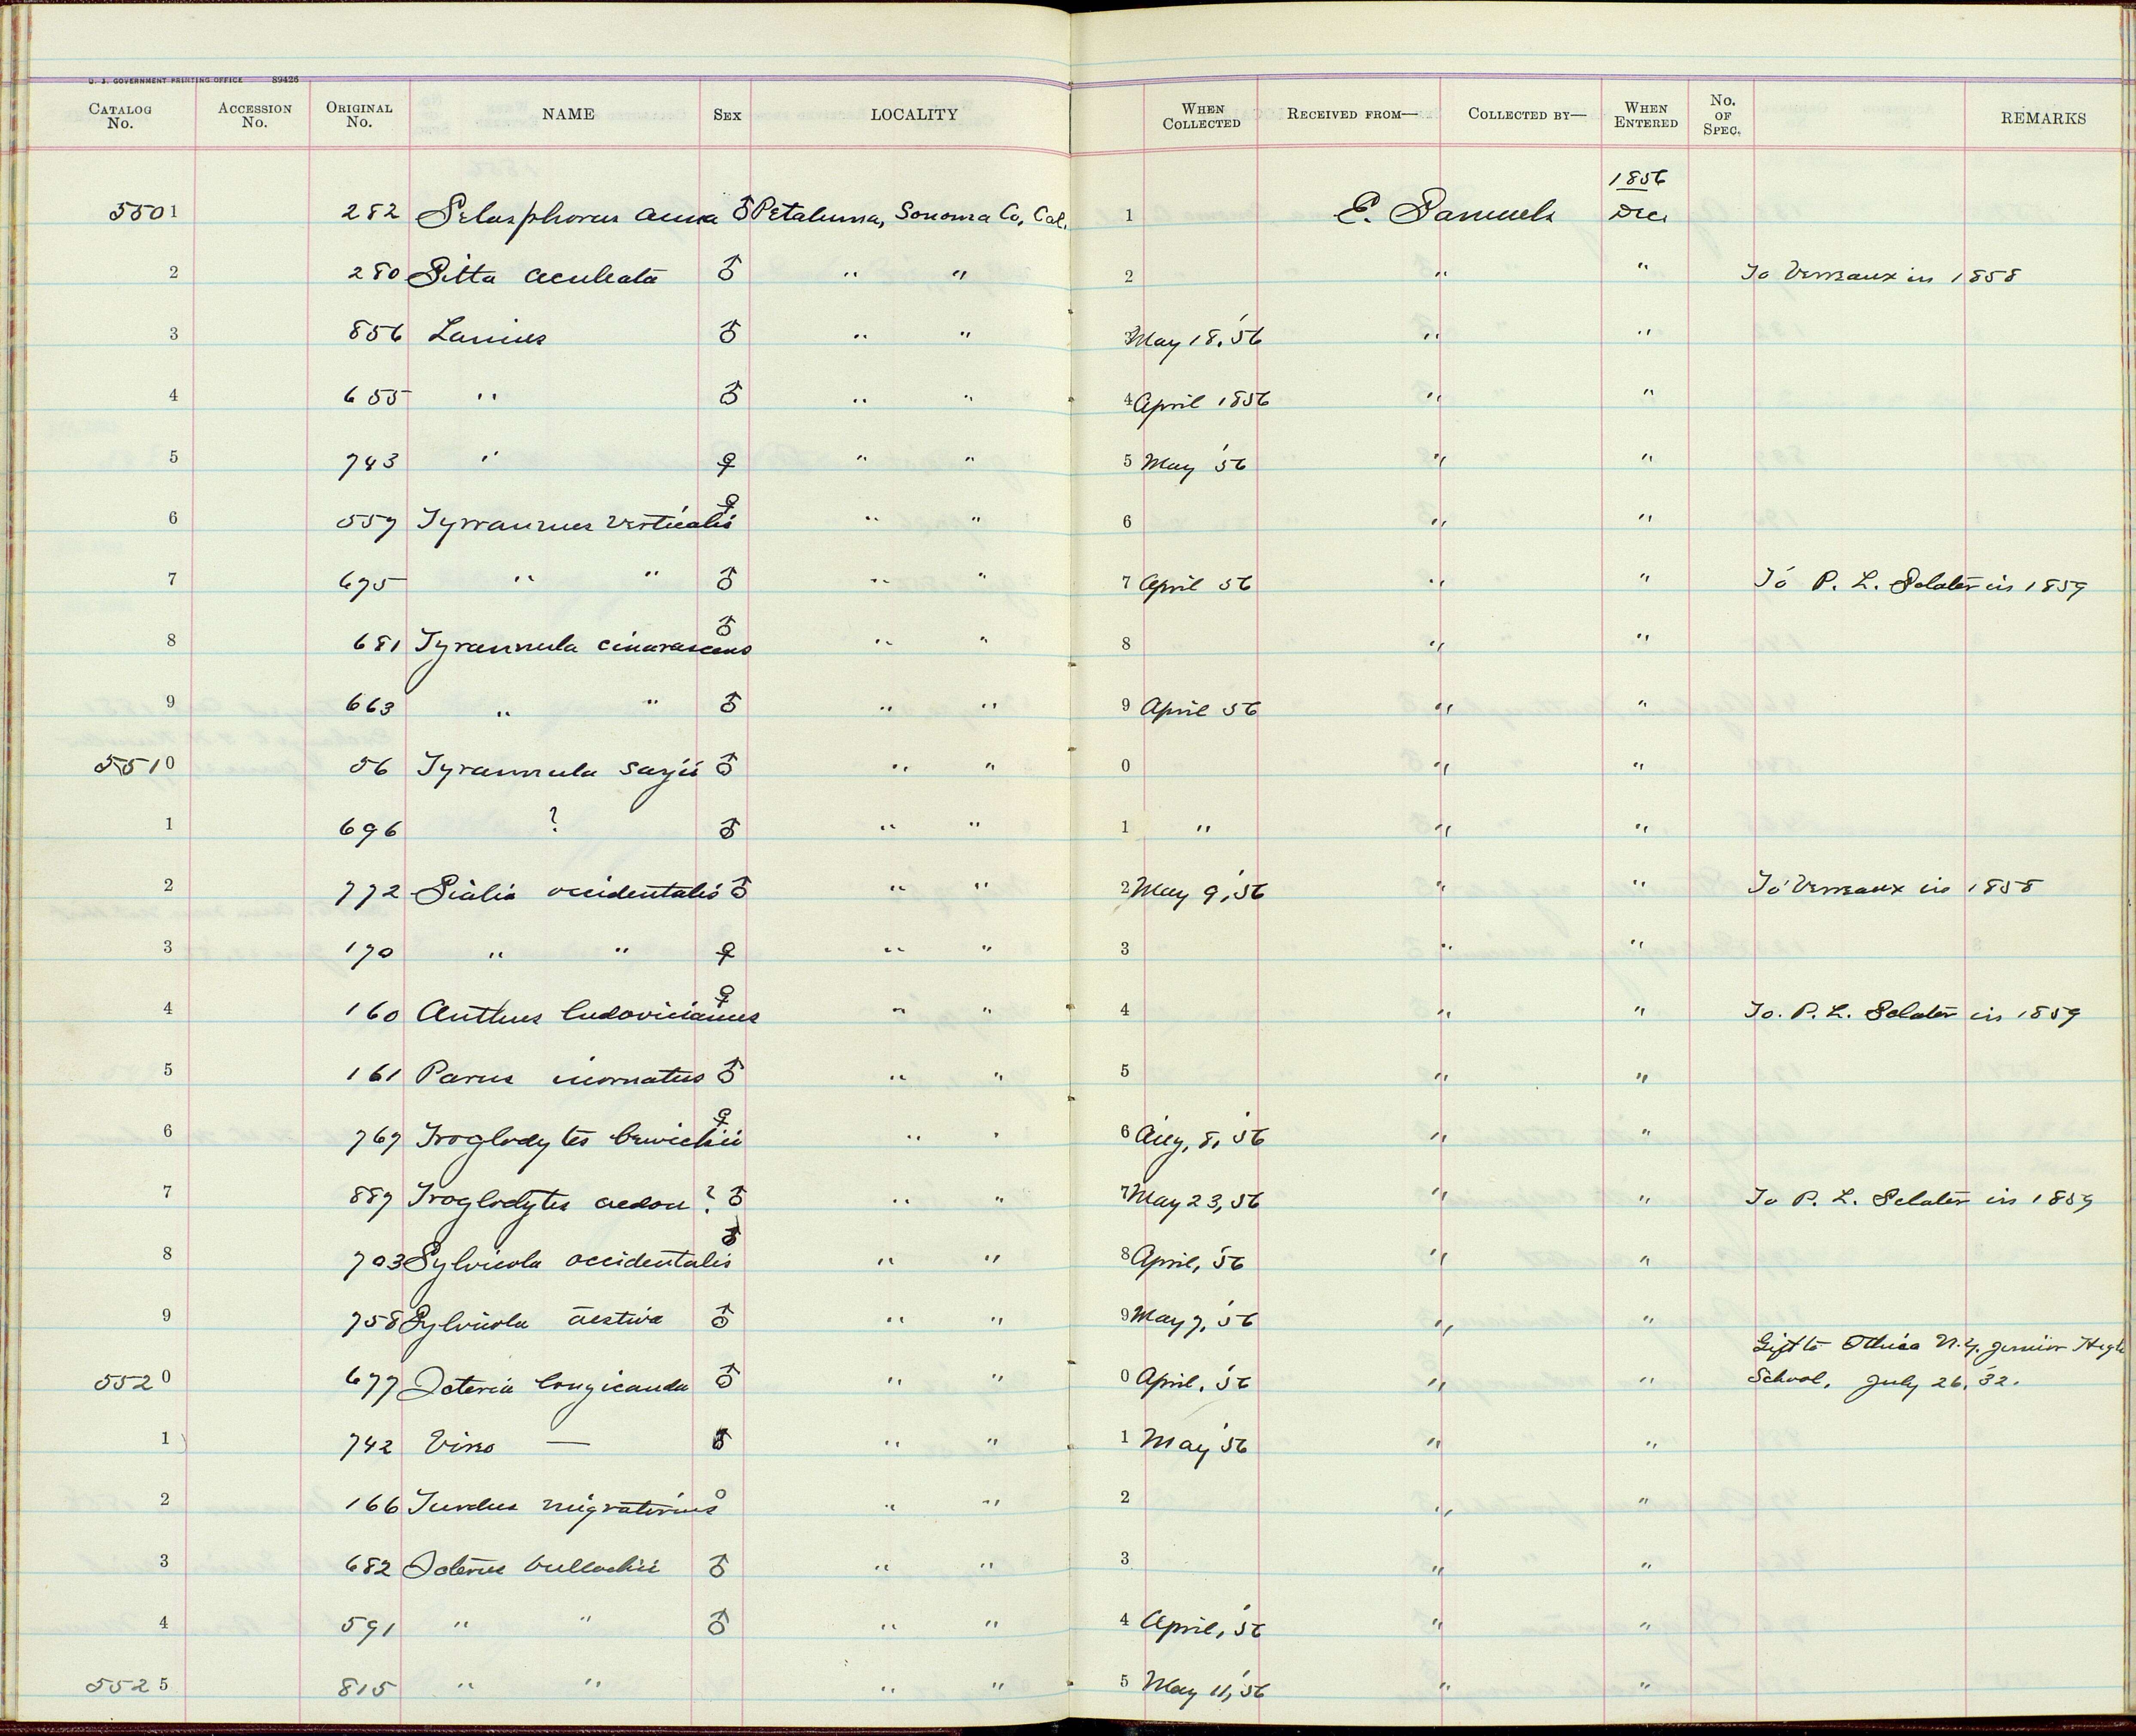 U. S. GOVERNMENT PRINTING OFFICE 89426
CATALOG No. ACCESSION No. ORIGINAL No. NAME SEX LOCALITY WHEN COLLECTED RECEIVED FROM— COLLECTED BY— WHEN ENTERED No. OF SPEC. REMARKS
1856
5501 282 Selasphorus anna ♂ Petaluma, Sonoma Co, Cal. 1 E. Samuels Dec.
2 280 Sitta aculeata ♂ " " 2 " " To Verreaux in 1858
3 856 Lanius ♂ " " 3 May 18, '56 " "
4 655 " ♂ " " 4 April 1856 " "
5 743 " ♀ " " 5 May '56 " "
6 557 Tyrannus verticalis ♀ " " 6 " "
7 675 " " ♂ " " 7 April 56 " " To P. L. Sclater in 1859
8 681 Tyrannula cinarascens ♂ " " 8 " "
9 663 " " ♂ " " 9 April 56 " "
5510 56 Tyrannula sayii ♂ " " 0 " "
1 696 ? ♂ " " 1 " " "
2 772 Sialia occidentalis ♂ " " 2 May 9, '56 " " To Verreaux in 1858
3 170 " " ♀ " " 3 " "
4 160 Anthus ludovicianus ♀ " " 4 " " To. P. L. Sclater in 1859
5 161 Parus inornatus ♂ " " 5 " "
6 767 Troglodytes bewickii ♀ " " 6 Aug, 8, '56 " "
7 887 Troglodytes aedon ? ♂ " " 7 May 23, 56 " " To P. L. Sclater in 1859
8 703 Sylvicola occidentalis ♂ " " 8 April, '56 " "
9 758 Sylvicola aestiva ♂ " " 9 May 7, '56 " "
Gift to Ithica N.Y. Junior High
5520 677 Icteria longicauda ♂ " " 0 April, '56 " " School, July 26, '32.
1 742 Vireo — ♂ " " 1 May '56 " "
2 166 Turdus migratorius " " 2 " "
3 682 Icterus bullockii ♂ " " 3 " "
4 591 " " ♂ " " 4 April, '56 " "
5525 815 " " " " 5 May 11, '56 " "